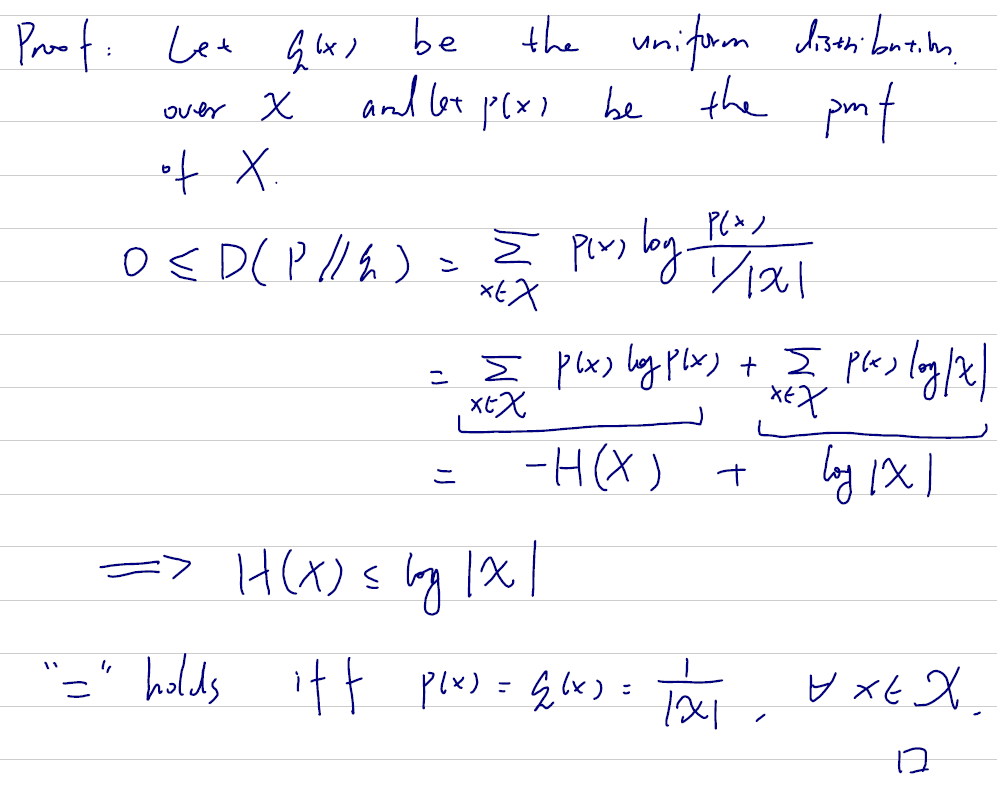 Proof: Let q(x) be the uniform distribution
over 𝒳 and let p(x) be the pmf
of X.
0 ≤ D(p//q) = Σ_{x∈𝒳} p(x) log p(x)/(1/|𝒳|)
= Σ_{x∈𝒳} p(x) log p(x) + Σ_{x∈𝒳} p(x) log|𝒳|
= -H(X) + log|𝒳|
⟹ H(X) ≤ log|𝒳|
"=" holds iff p(x) = q(x) = 1/|𝒳|, ∀ x∈𝒳.
□